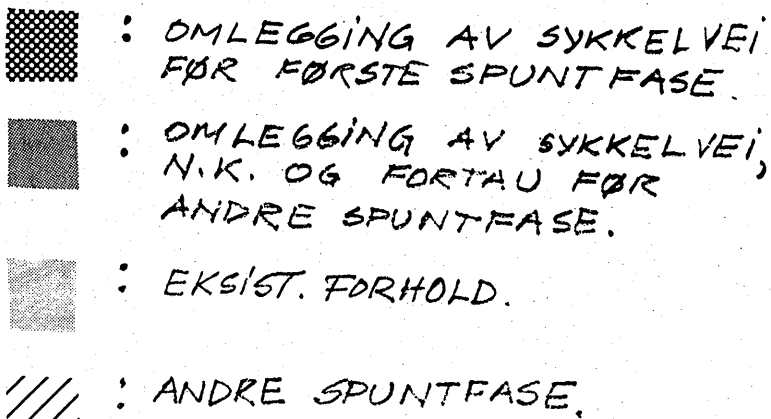 : OMLEGGING AV SYKKELVEI
FØR FØRSTE SPUNTFASE.
: OMLEGGING AV SYKKELVEI,
N.K. OG FORTAU FØR
ANDRE SPUNTFASE.
: EKSIST. FORHOLD.
: ANDRE SPUNTFASE.